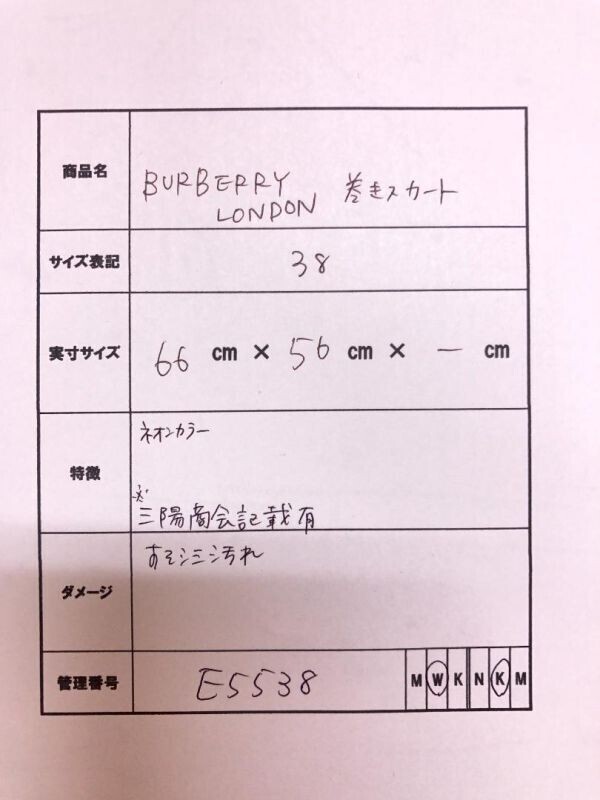 商品名 BURBERRY 巻きスカート
LONDON
サイズ表記 38
実寸サイズ 66 cm × 56 cm × ― cm
特徴 ネオンカラー
※
三陽商会記載有
ダメージ すそシミ汚れ
管理番号 E5538 M W K N K M